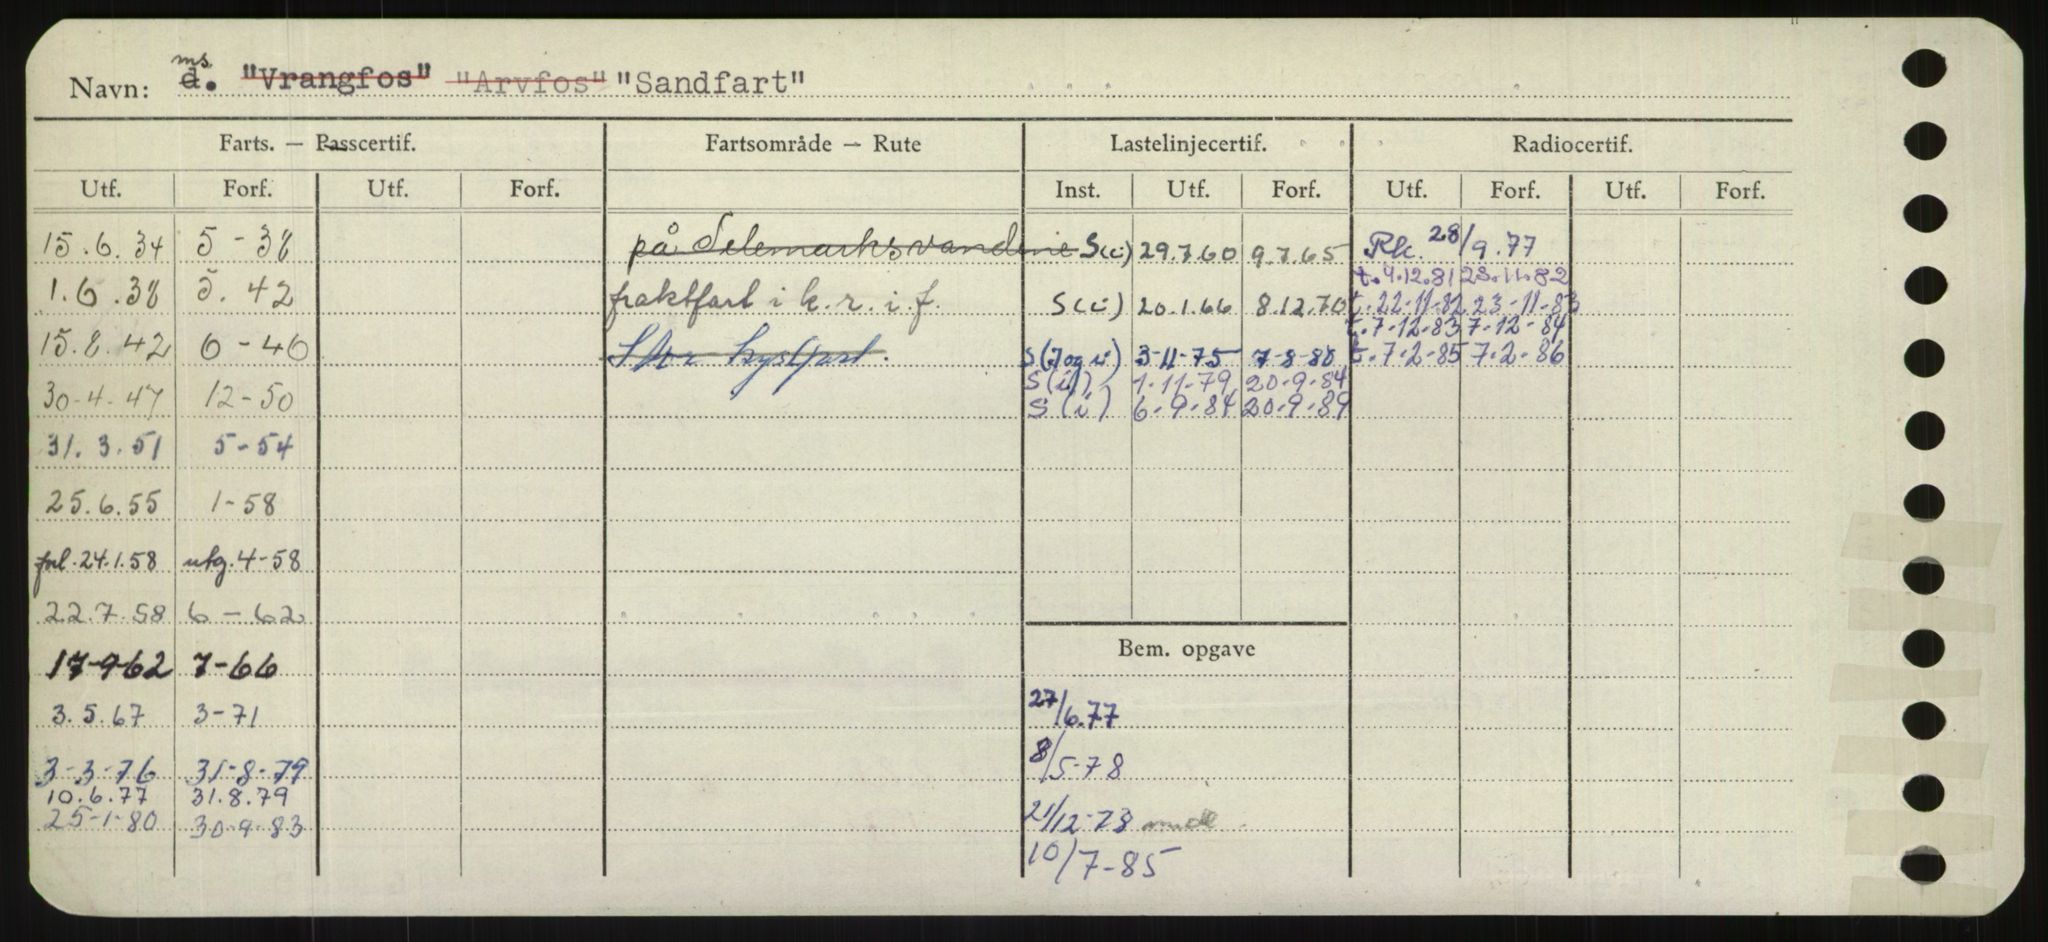 Navn: ms. d. "Vrangfos" "Arvfos" "Sandfart"
Farts. — Passcertif. Fartsområde — Rute Lastelinjecertif. Radiocertif.
Utf. Forf. Utf. Forf. Inst. Utf. Forf. Utf. Forf. Utf. Forf.
15.6.34 5-38 på Telemarksvandene S(i) 29.7.60 9.7.65 Rk. 28/9.77
t.4.12.81 23.11.82
1.6.38 5.42 fraktfart i k.r.i.f. S(i) 20.1.66 8.12.70 t.22-11-82 23-11-83
t.7-12-83 7-12-84
15.8.42 6-46 Stor kystfart. S(J og i) 3-11-75 7-8-80 t.7-2-85 7-2-86
S(i) 1-11-79 20-9-84
30-4-47 12-50 S(i) 6-9-84 20-9-89
31.3.51 5-54
25.6.55 1-58
forl.24.1.58 utg.4-58
22.7.58 6-62
17-9-62 7-66
Bem. opgave
3.5.67 3-71 27/6.77
3-3-76 31-8-79 8/5-78
10.6.77 31.8.79
25-1-80 30-9-83 21/12-78
10/7-85